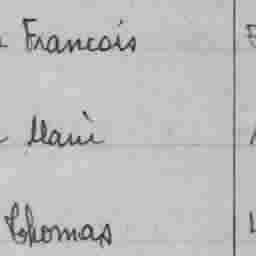 Francois
Marie
Thomas